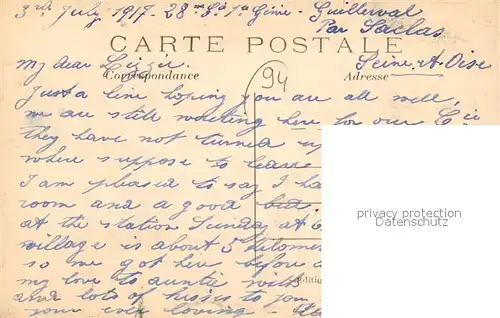 3rd July 1917. 28me Cie 1er Génie - Guillerval
Par Saclas
CARTE POSTALE
Seine-et-Oise
My dear Lizzie.
Correspondance
94
Adresse
Just a line hoping you are all well,
we are still waiting here for our
they have not turned
where suppose to leave
I am pleased to say I ha
room and a good
at the station Sunday at 6
village is about 5 kilomet
so we got here before
my love to auntie with
and lots of kisses to you
your ever loving -
privacy protection
Datenschutz